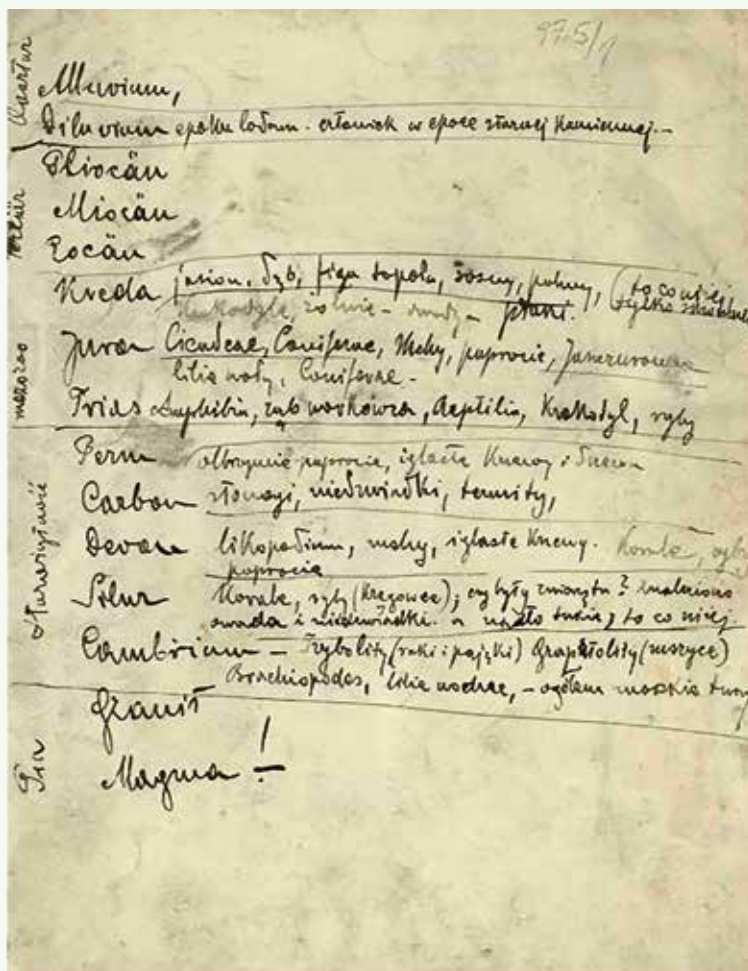 975/1
Quartär
Alluvium,
Diluvium epoka lodow. człowiek w epoce starej kamiennej. —
Tertiär
Pliocän
Miocän
Eocän
Kreda jesion, dąb, figa topola, sosny, palmy, (to co niżej
krokodyle, żółwie — ptaki. tylko
mezozoo
Jura Cicadeae, Coniferae, Mchy, paprocie,
lilie wody, Coniferae. —
Trias Amphibia, ząb workowca, Reptilia, Krokodyl, ryby
Perm olbrzymie paprocie, iglaste Krzewy i drzewa
Carbon stonogi, niedźwiadki, termity,
Devon likopodium, mchy, iglaste Krzewy. Korale, ryby
paprocie
Silur Korale, ryby (Kręgowce); czy były zwierzęta? znaleziono
owada i niedźwiadki. a to co niżej
Cambrium — Trybolity (raki i pająki) Graptolity
Brachiopodes, lilie wodne, — ogółem morskie
Granit
Pra
Magma !